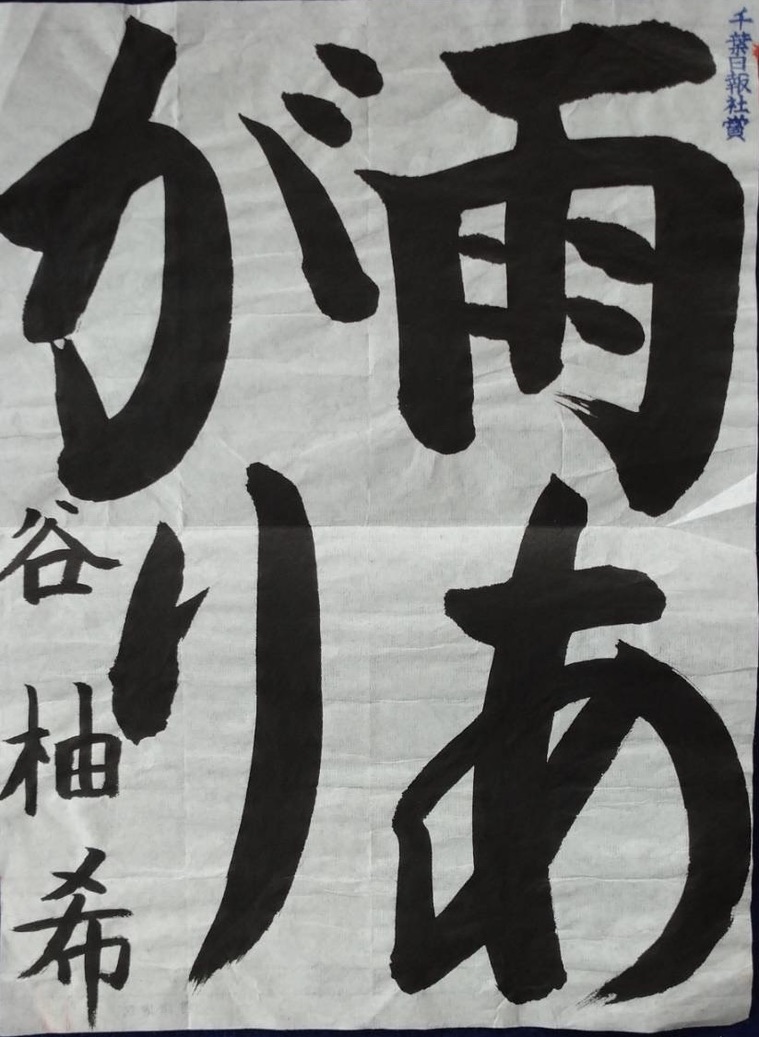 千葉日報社賞
雨あ
がり
谷柚希